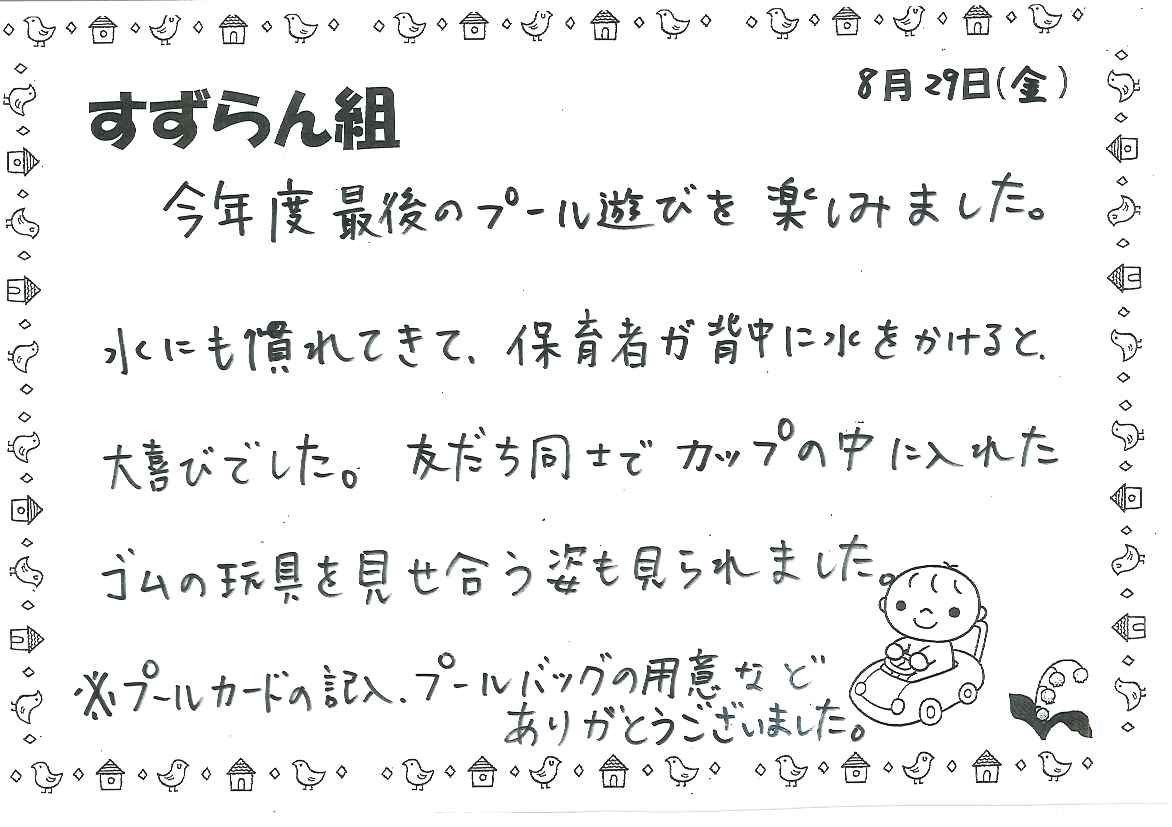 8月29日(金)
すずらん組
今年度最後のプール遊びを楽しみました。
水にも慣れてきて、保育者が背中に水をかけると、
大喜びでした。友だち同士でカップの中に入れた
ゴムの玩具を見せ合う姿も見られました。
※プールカードの記入、プールバッグの用意など
ありがとうございました。